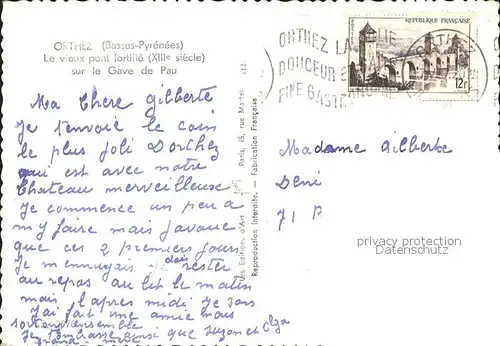 ORTHEZ (Basses-Pyrénées)
Le vieux pont fortifié (XIIIe siècle)
sur le Gave de Pau
RÉPUBLIQUE FRANÇAISE
12F
ORTHEZ LA
DOUCEUR
FINE GASTRONOMIE
Ma Chere Gilberte
Je t'envoie le coin
le plus joli Dorthez
qui est avec notre
Chateau merveilleuse
Je commence un peu a
m'y faire mais j'avoue
que ces 2 premiers jours
Je m'ennuyais je dois rester
au repos au lit le matin
mais l'apres midi Je sors
J'ai fait une amie nous
sortons ensemble
Je t'embrasse ainsi que Suzon et
Les Editions d'Art Paris, 15, rue Martel
Reproduction interdite. - Fabrication Française
Madame Gilberte
Déni
71 P
privacy protection
Datenschutz